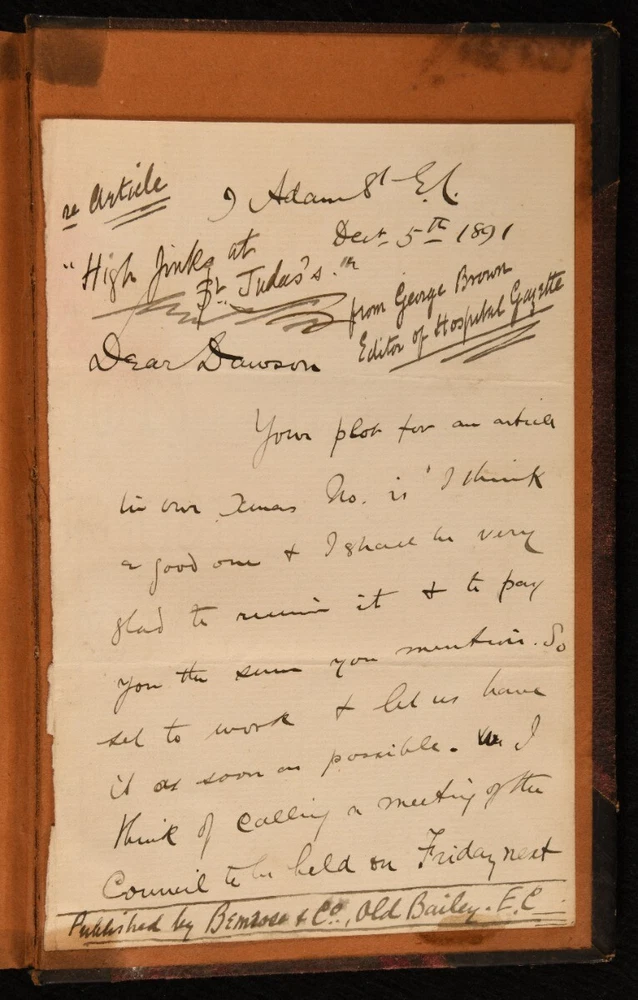 re Article
9 Adam St E.C.
Dec. 5th 1891
"High Jinks at
St Judas's."
from George Brown
Editor of Hospital Gazette
Dear Dawson
Your plot for an article
in our Xmas No. is I think
a good one & I shall be very
glad to receive it & to pay
you the sum you mention. So
set to work & let us have
it as soon as possible. I
think of calling a meeting of the
Council to be held on Friday next
Published by Bemrose & Co., Old Bailey. E.C.